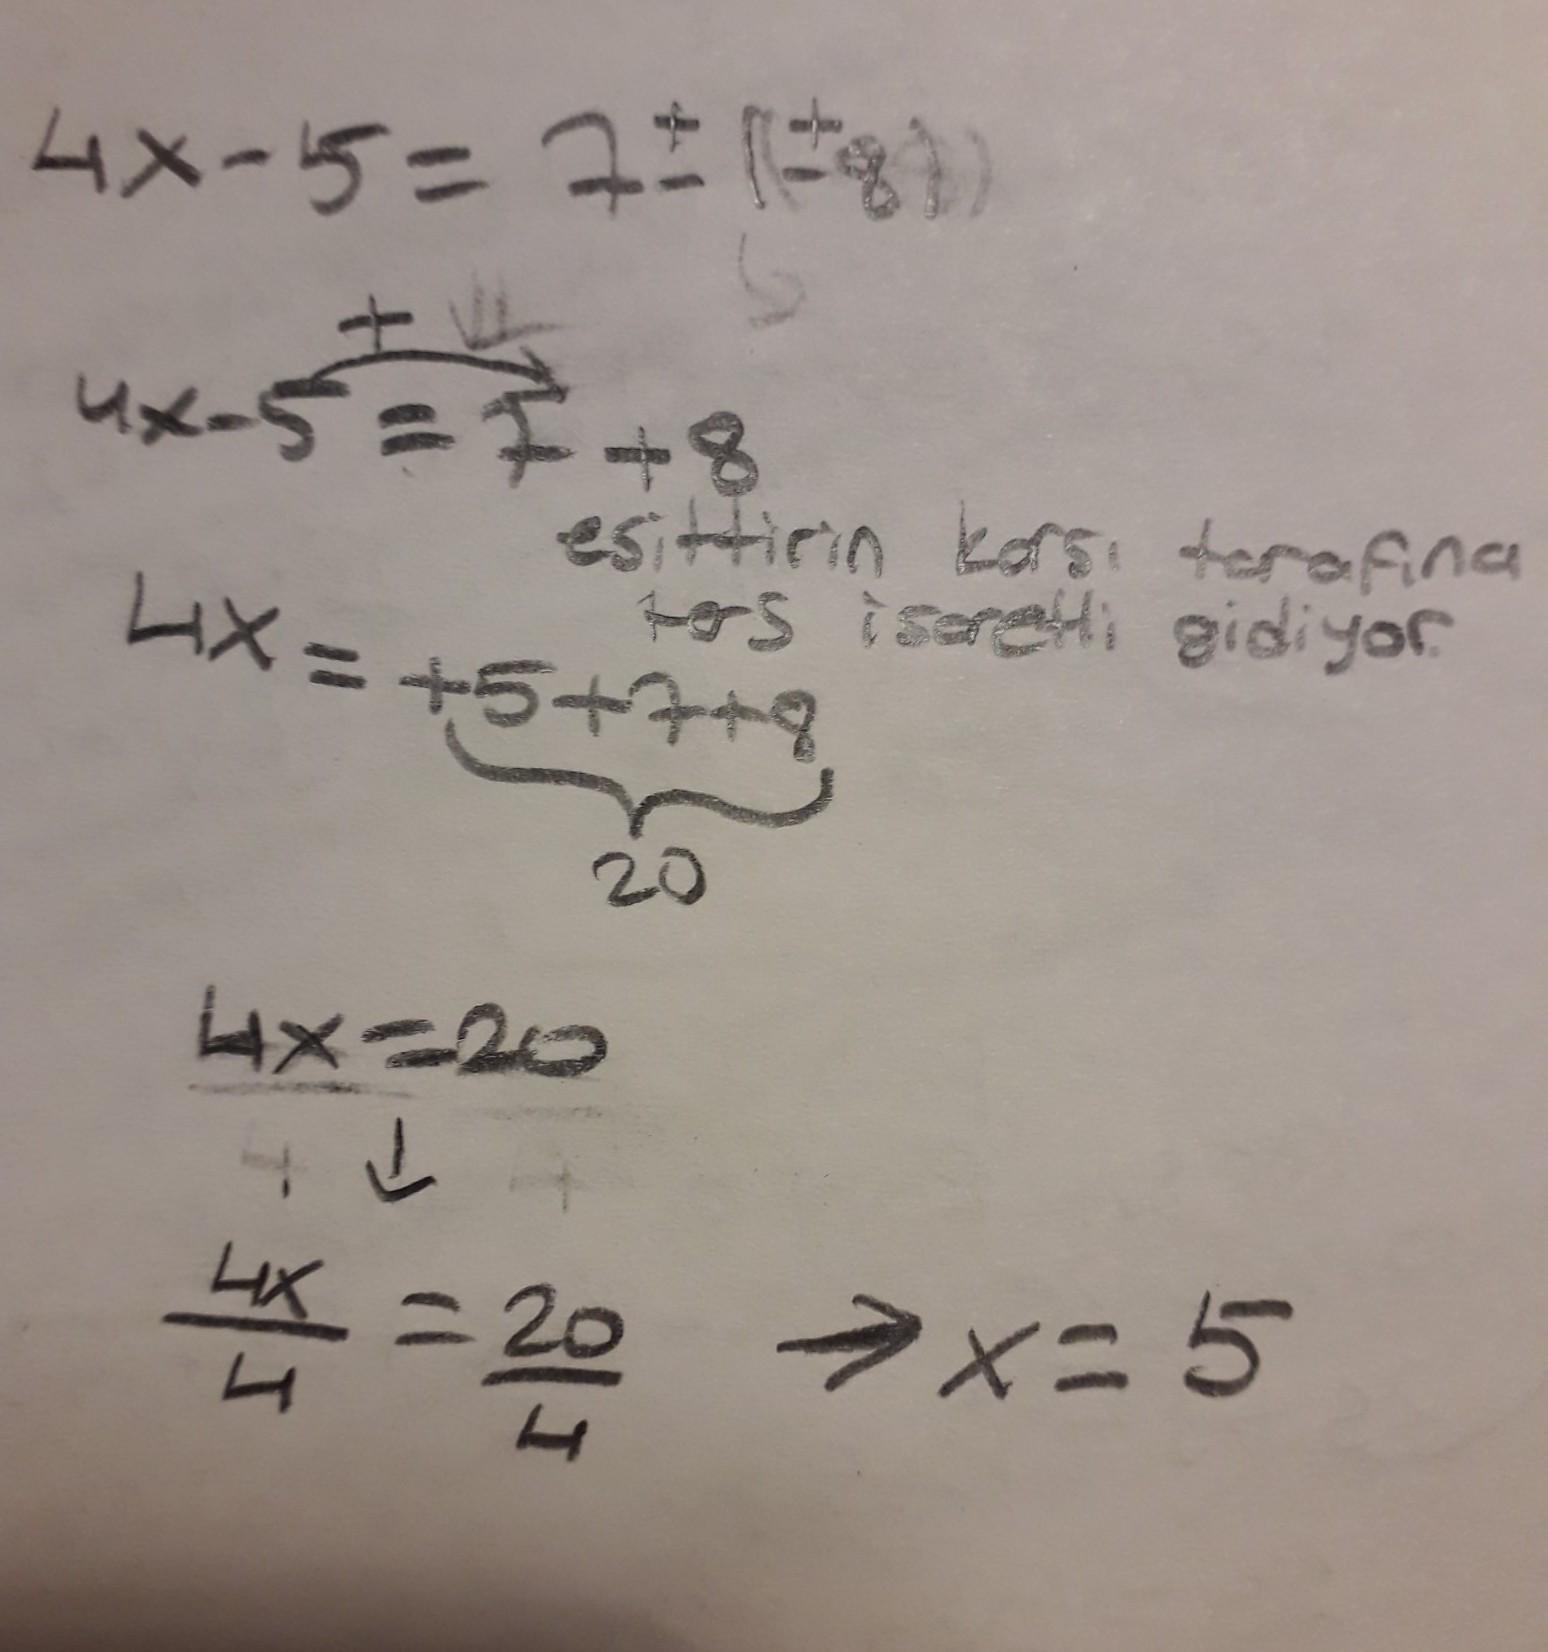 4x-5= 7±(±8)
+
4x-5=7+8
esittirin karsı tarafına
4x=+5+7+8
tas isaretli gidiyor.
20
4x=20
4 4
4x/4 = 20/4 → x=5